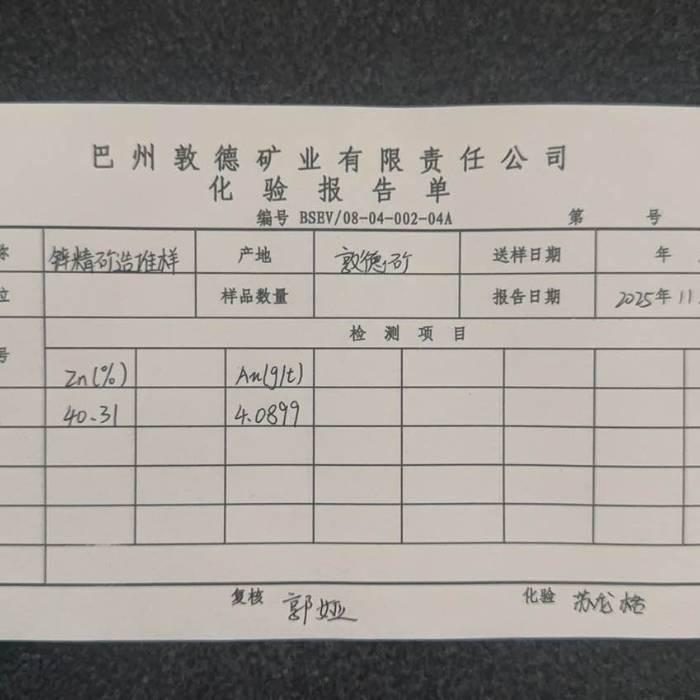 巴州敦德矿业有限责任公司
化验报告单
编号 BSEV/08-04-002-04A 第 号
称 锌精矿造堆样 产地 敦德矿 送样日期 年
位 样品数量 报告日期 2025年11.
号 检测项目
Zn(%) Au(g/t)
40.31 4.0899
复核 郭娅 化验 苏龙格